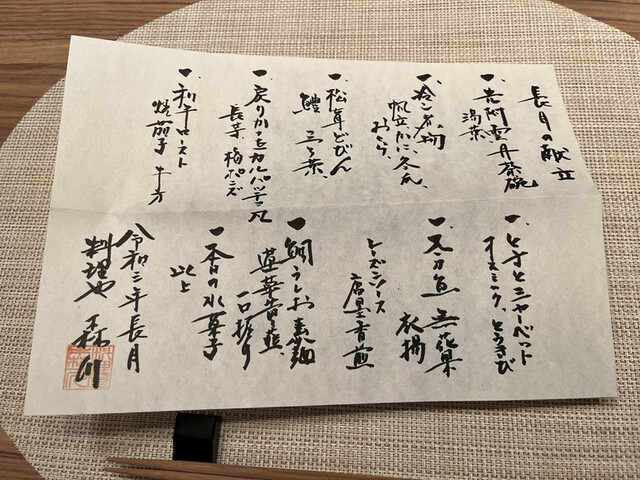 長月の献立
一、雲丹茶碗
湯葉
一、冷し炊物
帆立、かに、冬瓜、
おくら、
一、松茸どびん
鱧 三つ葉、
一、戻りかつをカルパッチョ風
長芋、梅ポンズ
一、和牛ロースト
焼茄子
一、とまとシャーベット
オスミック、とうきび
一、太刀魚 無花果
衣揚
チーズソース
唐墨香煎
一、鯛うしお素麺
蓮華
一口握り
一、本日の水菓子
以上
令和三年長月
料理や 森川